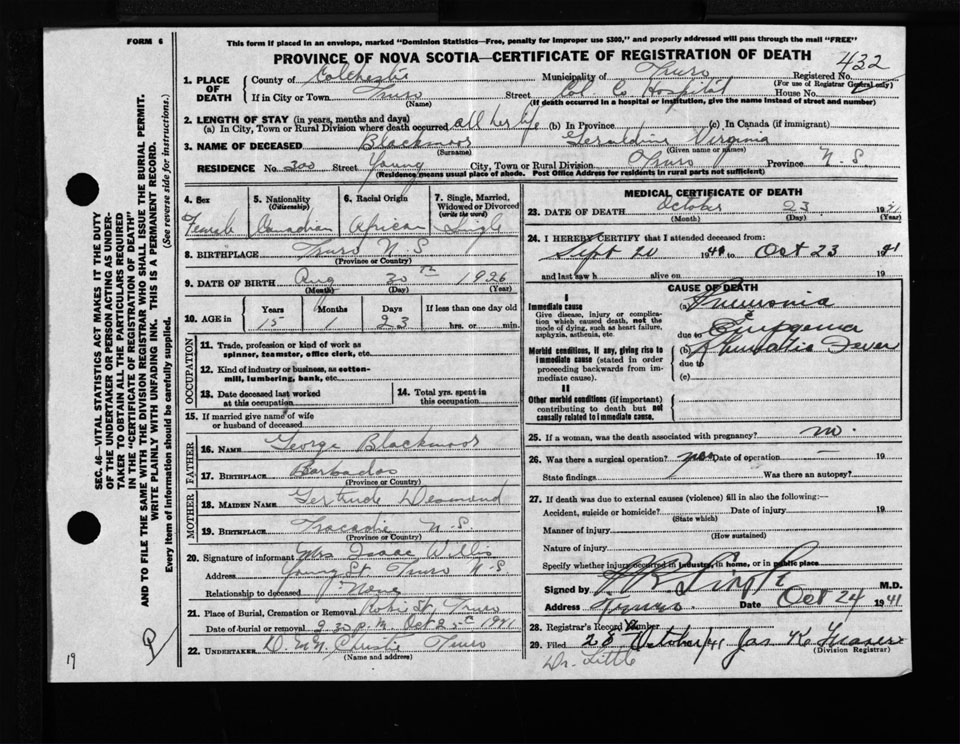 FORM 6
This form if placed in an envelope, marked "Dominion Statistics—Free, penalty for improper use $300," and properly addressed will pass through the mail "FREE"
PROVINCE OF NOVA SCOTIA—CERTIFICATE OF REGISTRATION OF DEATH
432
1. PLACE OF DEATH County of Colchester Municipality of Truro Registered No.
(For use of Registrar General only)
If in City or Town Truro Street Col Co Hospital House No.
(Name) (If death occurred in a hospital or institution, give the name instead of street and number)
2. LENGTH OF STAY (in years, months and days)
(a) In City, Town or Rural Division where death occurred all her life (b) In Province (c) In Canada (if immigrant)
3. NAME OF DECEASED Blackmoor Geraldine Virginia
(Surname) (Given name or names)
RESIDENCE No. 300 Street Young City, Town or Rural Division Truro Province N.S
(Residence means usual place of abode. Post Office Address for residents in rural parts not sufficient)
4. Sex 5. Nationality (Citizenship) 6. Racial Origin 7. Single, Married, Widowed or Divorced (write the word)
Female Canadian African Single
8. BIRTHPLACE Truro N.S
(Province or Country)
9. DATE OF BIRTH Aug 30th 1926
(Month) (Day) (Year)
10. AGE in Years Months Days If less than one day old
15 1 23 hrs. or min.
OCCUPATION
11. Trade, profession or kind of work as spinner, teamster, office clerk, etc.
12. Kind of industry or business, as cotton-mill, lumbering, bank, etc.
13. Date deceased last worked at this occupation
14. Total yrs. spent in this occupation
15. If married give name of wife or husband of deceased
FATHER
16. NAME George Blackmoor
17. BIRTHPLACE Barbados
(Province or Country)
MOTHER
18. MAIDEN NAME Gertrude Desmond
19. BIRTHPLACE Tracadie N.S.
(Province or Country)
20. Signature of informant Mrs Isaac Willis
Address Young St. Truro N.S.
Relationship to deceased
21. Place of Burial, Cremation or Removal Robie St, Truro
Date of burial or removal 2.30 p.m. Oct 25 1941
22. UNDERTAKER Christie Truro
(Name and address)
MEDICAL CERTIFICATE OF DEATH
23. DATE OF DEATH October 23 1941
(Month) (Day) (Year)
24. I HEREBY CERTIFY that I attended deceased from:
Sept 20 1941 to Oct 23 1941
and last saw h alive on 19
CAUSE OF DEATH
I
Immediate cause
Give disease, injury or complication which caused death, not the mode of dying, such as heart failure, asphyxia, asthenia, etc.
(a) Pneumonia &
due to Empyema
Morbid conditions, if any, giving rise to immediate cause (stated in order proceeding backwards from immediate cause).
(b) Rheumatic Fever
due to
(c)
II
Other morbid conditions (if important) contributing to death but not causally related to immediate cause.
25. If a woman, was the death associated with pregnancy? no.
26. Was there a surgical operation? Date of operation — 19
State findings Was there an autopsy?
27. If death was due to external causes (violence) fill in also the following:—
Accident, suicide or homicide? Date of injury 19
(State which)
Manner of injury
(How sustained)
Nature of injury
Specify whether injury occurred in industry, in home, or in public place
Signed by M.D.
Address Truro Date Oct 24 1941
28. Registrar's Record Number
29. Filed 28 October/41 Jas K Fraser
(Division Registrar)
Dr. Little
SEC. 46—VITAL STATISTICS ACT MAKES IT THE DUTY
OF THE UNDERTAKER OR PERSON ACTING AS UNDER-
TAKER TO OBTAIN ALL THE PARTICULARS REQUIRED
IN THE "CERTIFICATE OF REGISTRATION OF DEATH"
AND TO FILE THE SAME WITH THE DIVISION REGISTRAR WHO SHALL ISSUE THE BURIAL PERMIT.
WRITE PLAINLY WITH UNFADING INK. THIS IS A PERMANENT RECORD.
Every item of information should be carefully supplied. (See reverse side for instructions.)
19